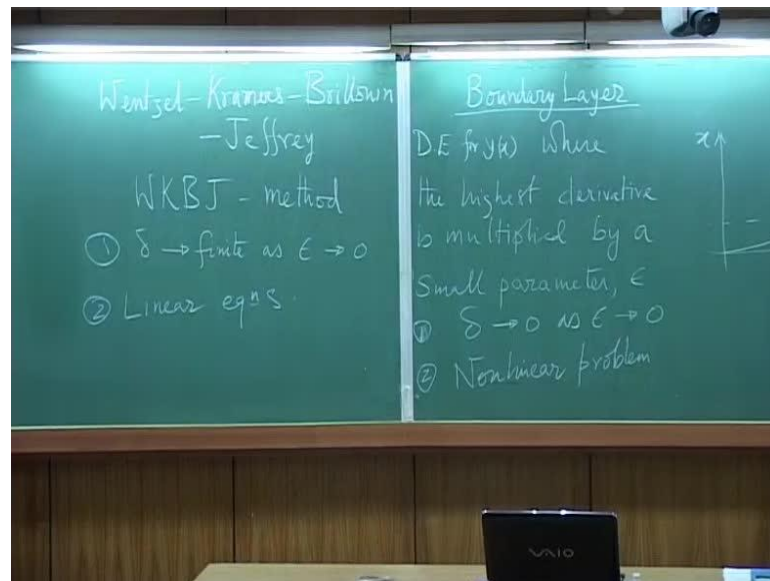 Wentzel-Kramers-Brillouin
-Jeffrey
WKBJ-method
① δ → finite as ϵ → 0
② Linear eqnS.
Boundary Layer
D.E for y(x) where
the highest derivative
is multiplied by a
Small parameter, ϵ
① δ → 0 as ϵ → 0
② Nonlinear problem
x
VAIO